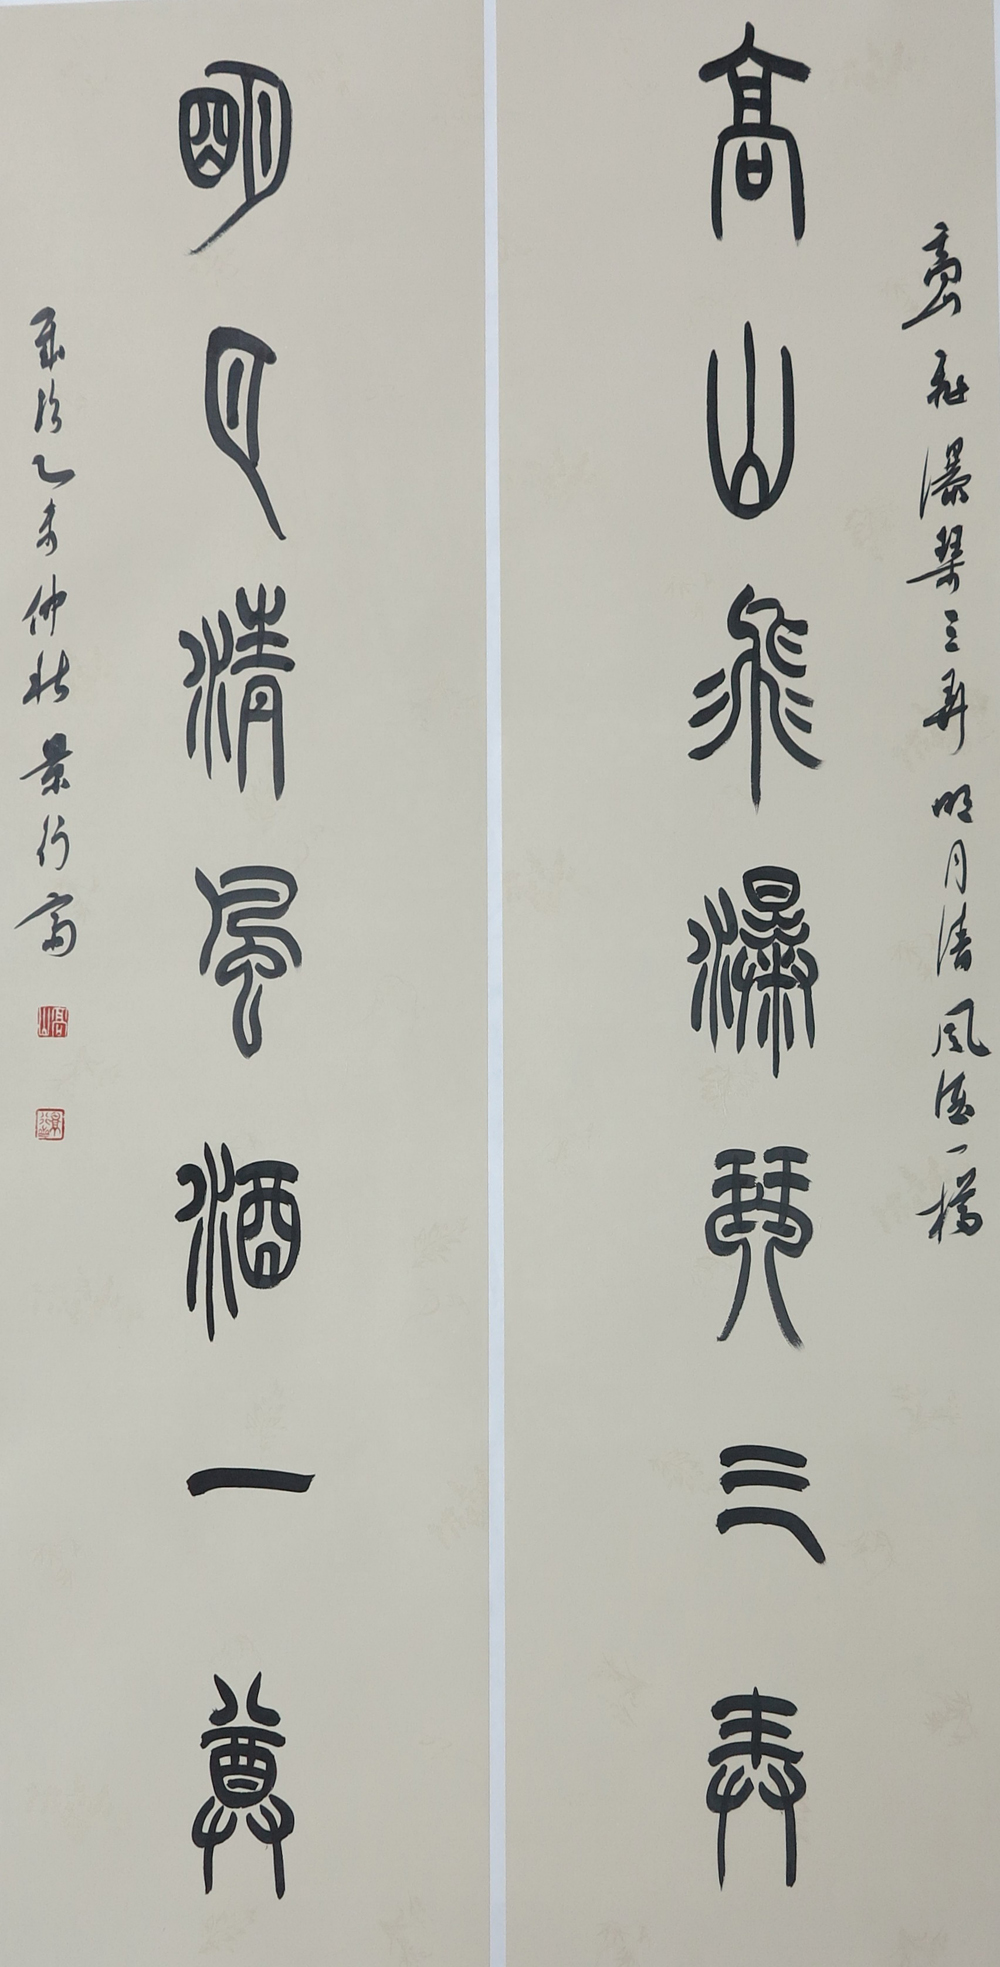 高山飛瀑琴三弄明月清風酒一樽
高山飛瀑琴三弄
明月清風酒一尊
歲次乙未仲秋景行